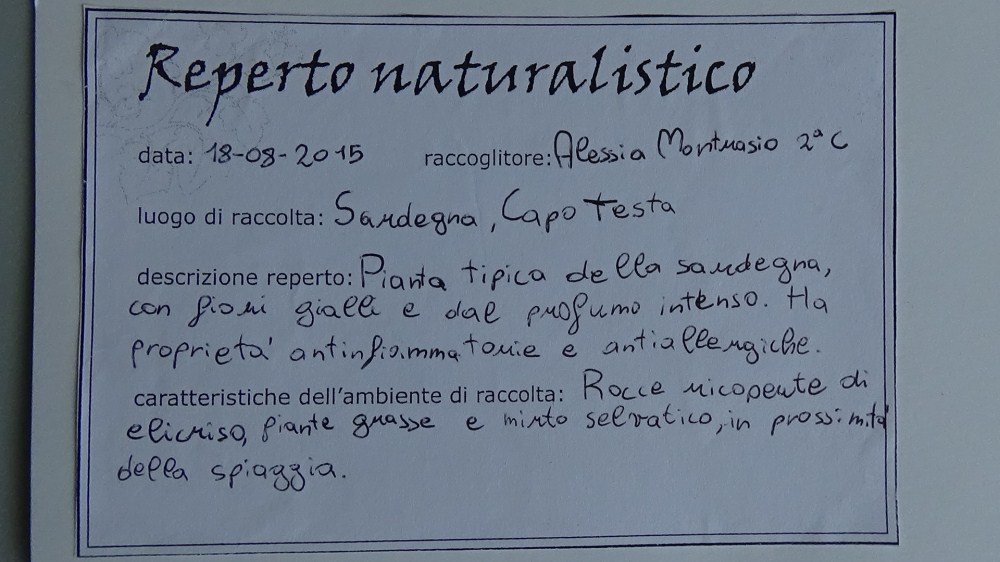 Reperto naturalistico
data: 18-08-2015 raccoglitore: Alessia Montuasio 2ª C
luogo di raccolta: Sardegna, Capo Testa
descrizione reperto: Pianta tipica della sardegna,
con fiori gialli e dal profumo intenso. Ha
proprietà antinfiammatorie e antiallergiche.
caratteristiche dell'ambiente di raccolta: Rocce ricoperte di
elicriso, piante grasse e mirto selvatico, in prossimità
della spiaggia.